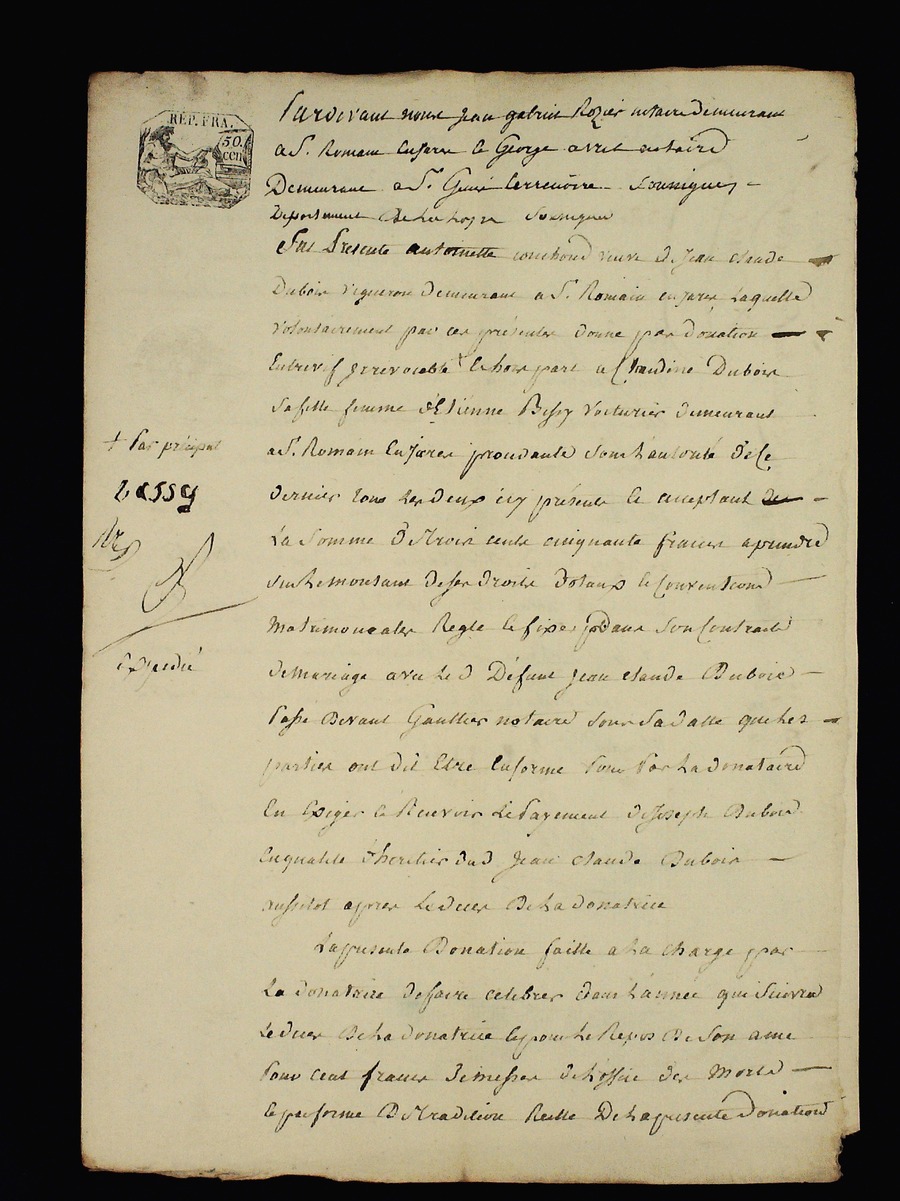 REP. FRA.
50.
cen
Pardevant nous jean gabriel Rozier notaire Demeurant
a St. Romain enjarez & George notaire
Demeurant a St. Genis terrenoire Soussignes
Departement De La Loyre Soussignes
Fut Presente antoinette couchoud veuve de jean claude
Dubois vigneron demeurant a St. Romain enjarez Laquelle
volontairement par ces présentes donne par donation
Entrevif irrevocable + & hors part a Claudine Dubois
Sa fille femme d'Etienne Bissy voiturier demeurant
a St. Romain Enjarez procédante sous L'autorité de ce
dernier tous Les deux icy présents & acceptant de
La Somme de trois cents cinquante francs a prendre
Sur Le montant de ses droits dotaux & Conventions
Matrimoniales Reglé & fixés Dans Son Contract
de mariage avec Le d Défunt jean claude Dubois
Passé Devant Gaultier notaire Sous Sa datte que Les
parties ont dit Etre En forme Pour Par La donataire
En Exiger & Recevoir Le Payement de joseph Dubois
En qualité d'heritier dud jean claude Dubois
aussitot après Le deces De La donatrice
La présente Donation faitte a La charge par
La donatrice de faire celebrer dans L'année qui Suivra
Le deces De La donatrice & pour Le Repos De Son ame
Pour cent francs de messes de L'office des Morts
& pr forme De tradition Réelle De La présente donation
+ Par préciput
expédié